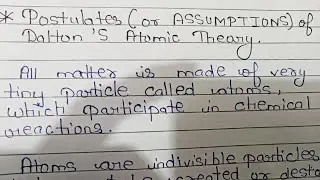 * Postulates (or ASSUMPTIONS) of
Dalton'S Atomic Theory.
All matter is made of very
tiny particle called atoms,
which participate in chemical
reactions.
Atoms are indivisible particles,
created or